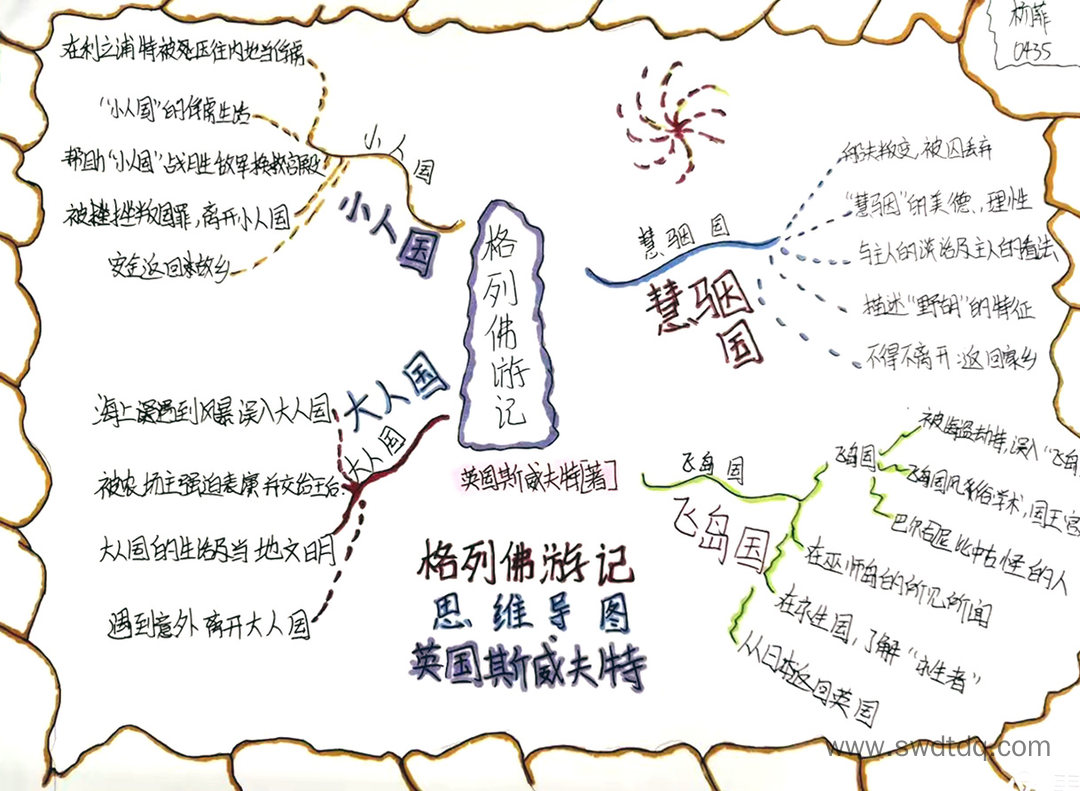 杨菲
0435
小人国
小人国
"小人国"的俘虏生活
被挫挫叛国罪,离开小人国
安全返回本故乡
格列佛游记
慧骃国
慧骃国
船夫叛变,被囚丢弃
"慧骃"的美德、理性
与主人的谈话及主人的看法
描述"野胡"的特征
不得不离开:返回家乡
大人国
大人国
海上遇到风暴误入大人国
被农场主强迫表演并交给王后
大人国的生活及当地文明
遇到意外离开大人国
英国斯威夫特[著]
飞岛国
飞岛国
飞岛国
被海盗劫持,误入"飞岛
飞岛国风和俗学术,国王宫
巴尔石尼比中古怪的人
在巫师岛的所见所闻
在永生国,了解"永生者"
从日本返回英国
格列佛游记
思维导图
英国斯威夫特
www.swdtdq.com